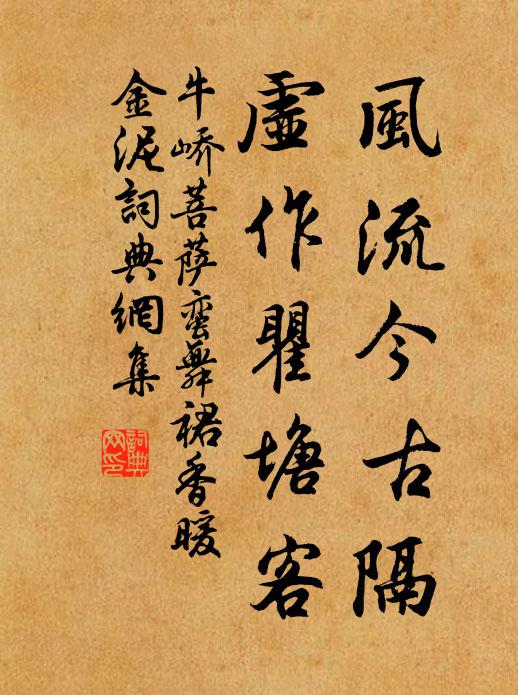 風流今古隔
虛作瞿塘客
牛嶠菩薩蠻舞裙香暖
金泥詞典網集
詞典
网印